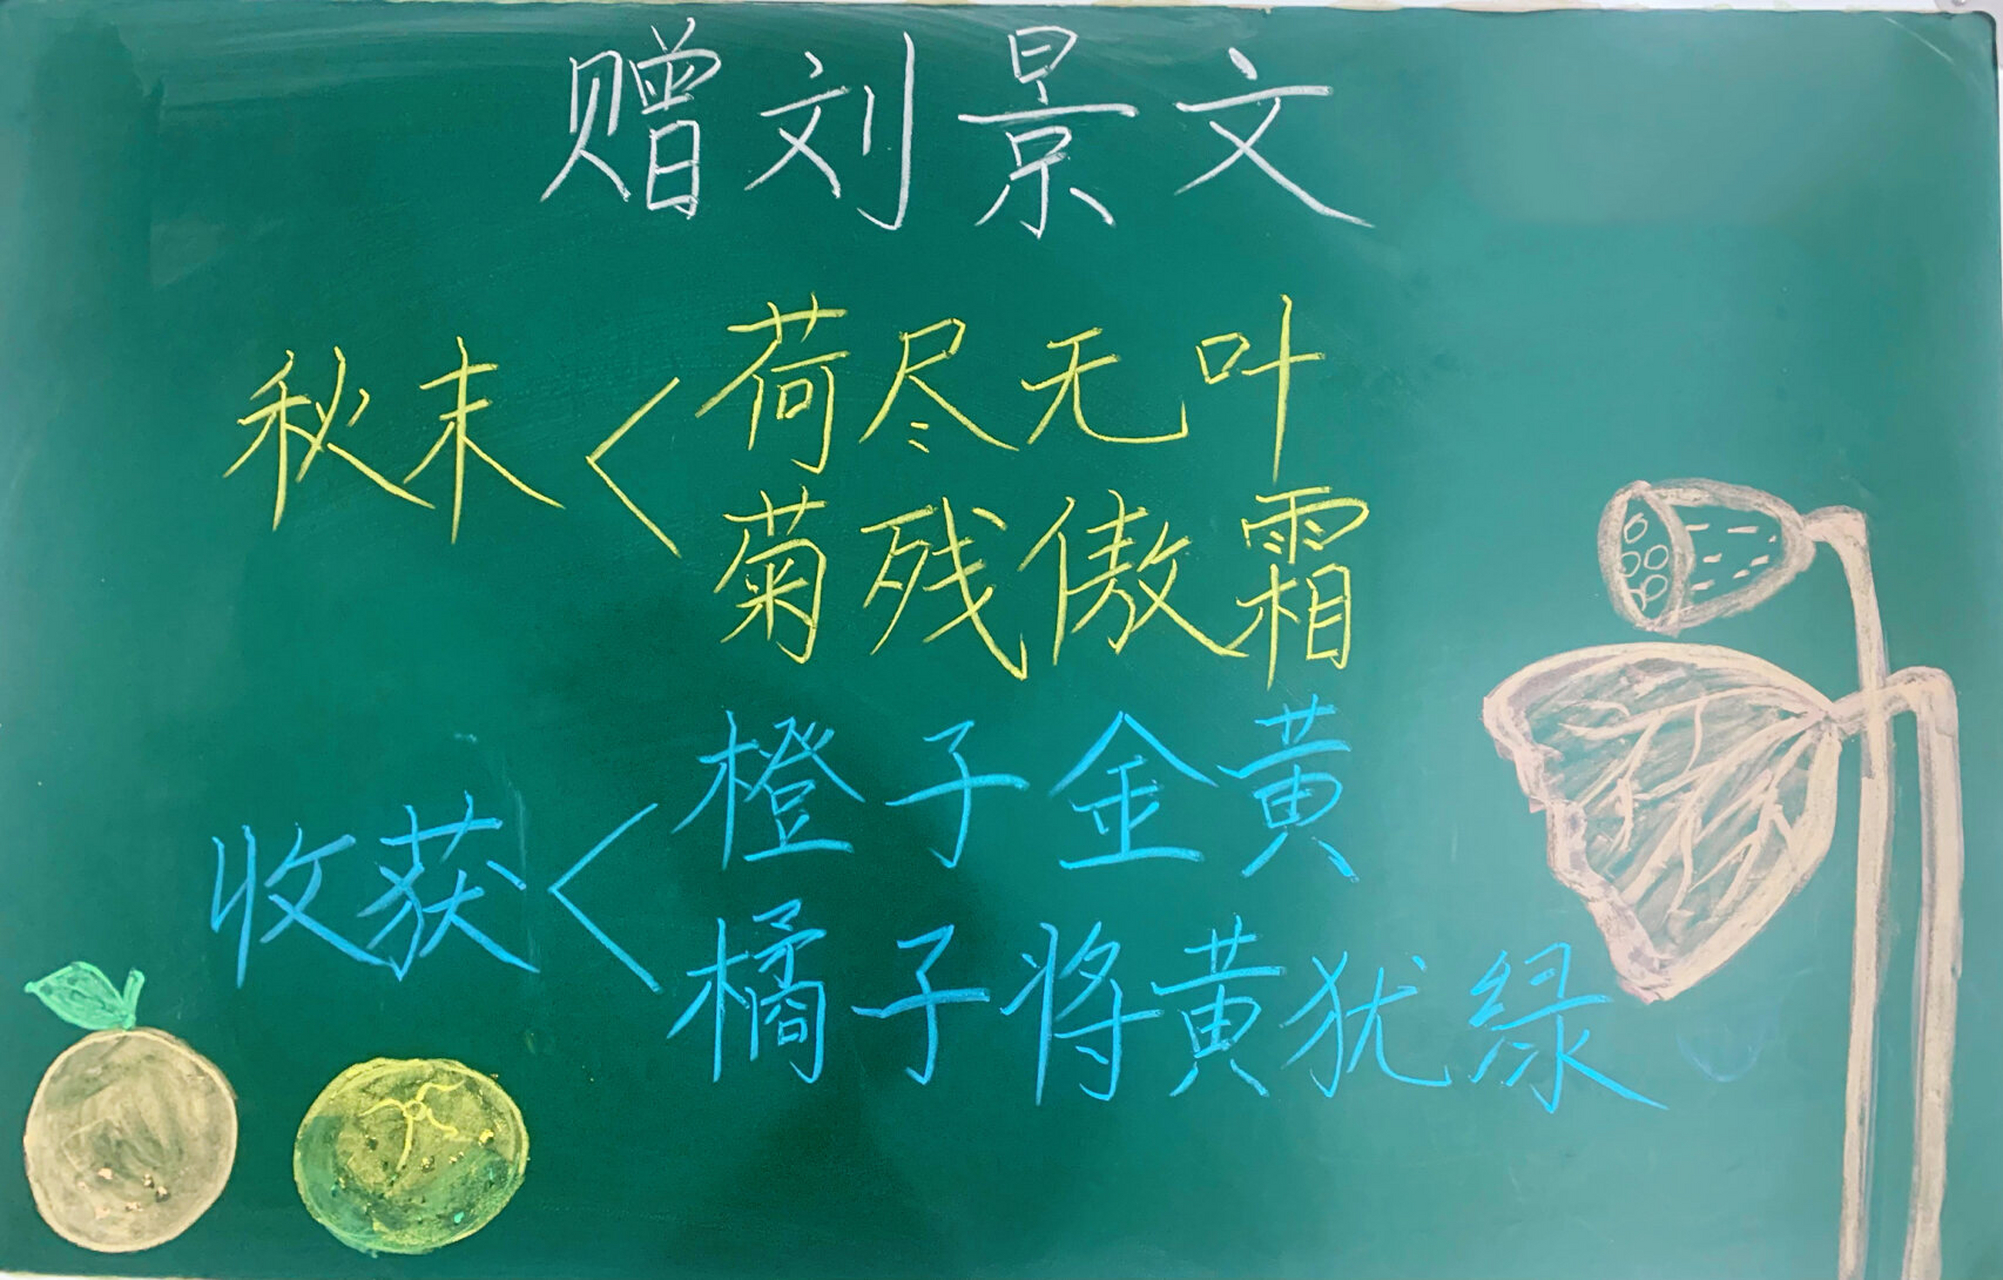 赠刘景文
秋末
荷尽无叶
菊残傲霜
收获
橙子金黄
橘子将黄犹绿